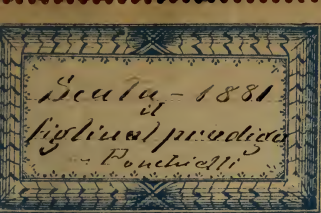 Scala - 1881
il
figliuol prodigo
Ponchielli